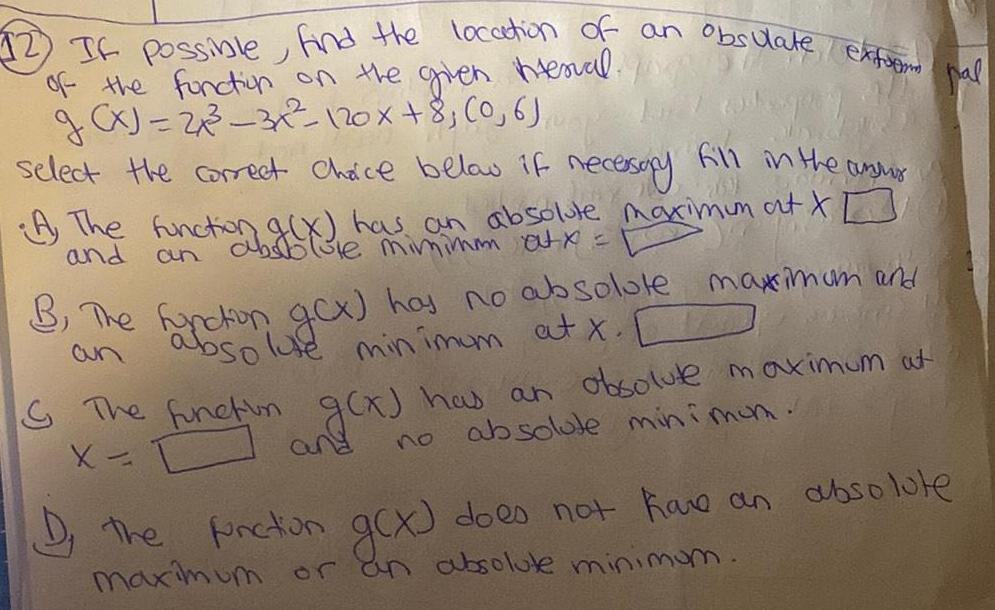 12) If possible, find the location of an obsulate extrem pal
of the function on the given interval.
g(x) = 2x³ - 3x² - 120x + 8, (0, 6)
select the correct choice below if necesary fill in the answer
A, The function g(x) has an absolute maximum at x
and an absolute minimum at x =
B, The function g(x) has no absolute maximum and
an absolute minimum at x.
C, The function g(x) has an absolute maximum at
x = and no absolute minimum.
D, the function g(x) does not have an absolute
maximum or an absolute minimum.